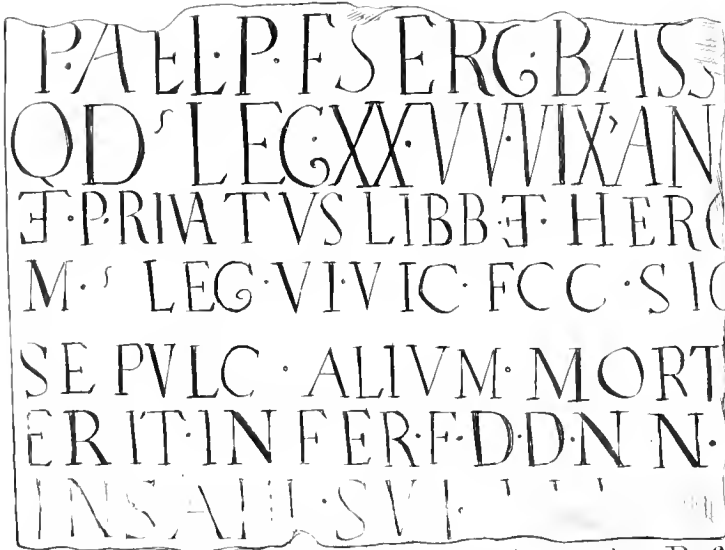 P·AEL·P·F SERG·BASS
QD S LEG·XX·VV·VIX' AN
ET·PRIVATVS LIBB·ET·HERC
M· S LEG·VI·VIC·FCC·SIC
SEPVLC·ALIVM·MORT
ERIT·INFER·F·D·D·N N·
INS SVI